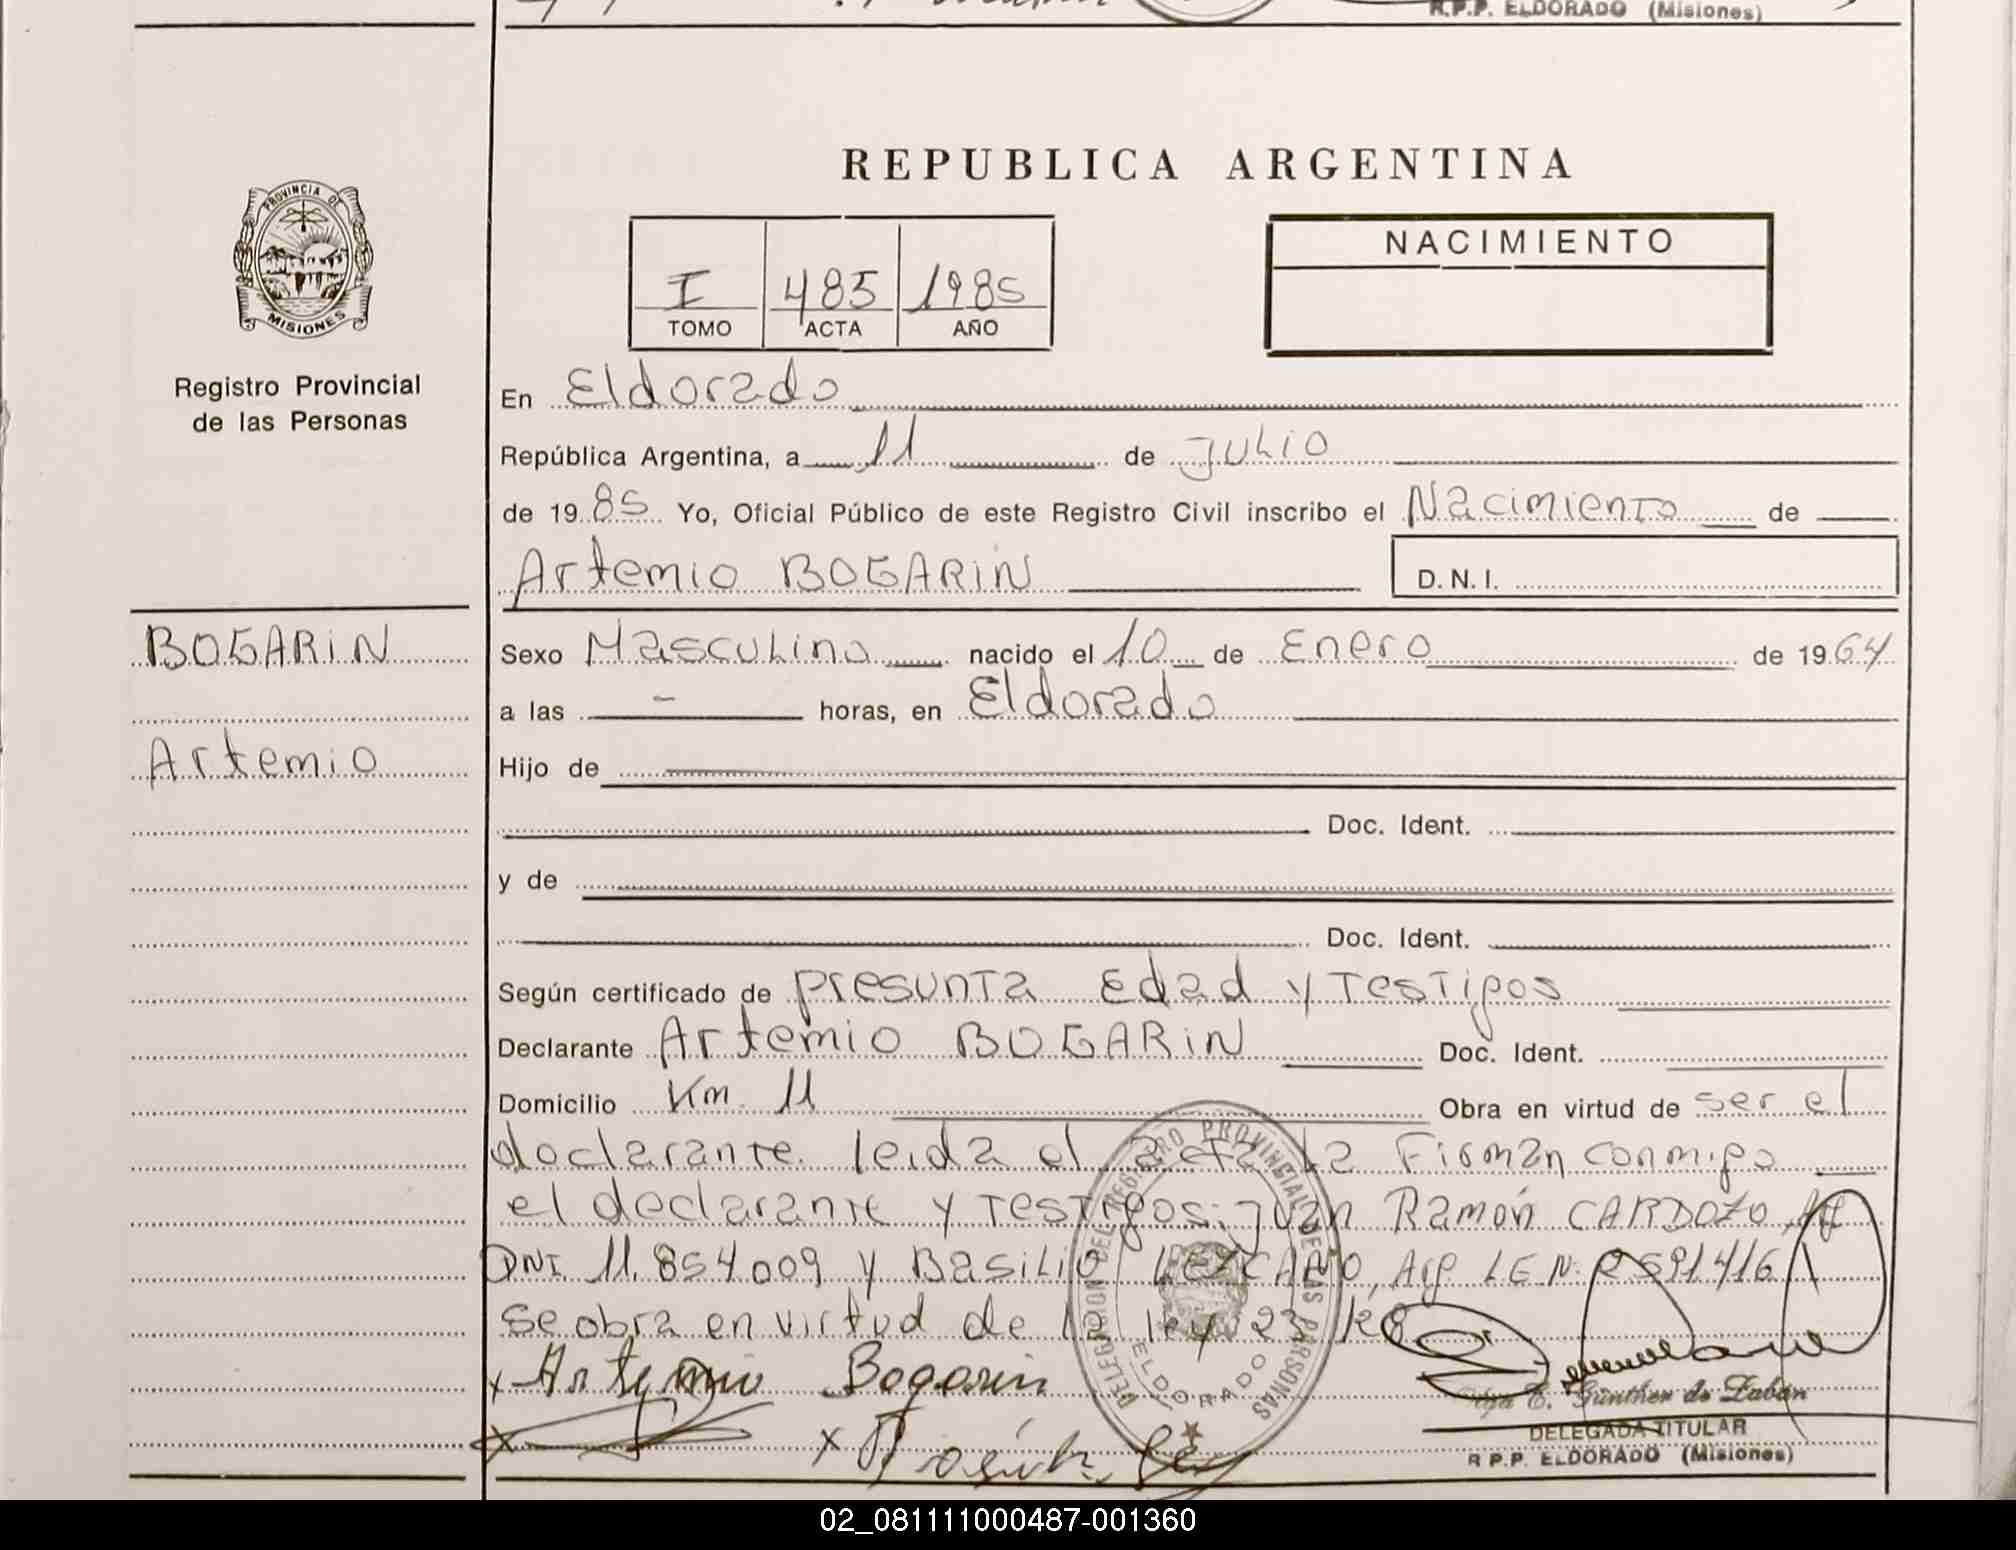 R.P.P. ELDORADO (Misiones)
REPUBLICA ARGENTINA
PROVINCIA DE
MISIONES
Registro Provincial
de las Personas
I 485 1985
TOMO ACTA AÑO
NACIMIENTO
En Eldorado
República Argentina, a 11 de Julio
de 1985 Yo, Oficial Público de este Registro Civil inscribo el Nacimiento de
Artemio BOGARIN D. N. I.
BOGARIN
Artemio
Sexo Masculino nacido el 10 de Enero de 1964
a las - horas, en Eldorado
Hijo de
Doc. Ident.
y de
Doc. Ident.
Según certificado de presunta Edad y Testigos
Declarante Artemio BOGARIN Doc. Ident.
Domicilio Km. 11 Obra en virtud de ser el
declarante. leida el acta la Firman conmigo
el declarante y Testigos: Juan Ramón CARDOZO,
DNI. 11.854.009 y Basilio LEZCANO, Arg. L E N.
se obra en virtud de la ley 23.128
x Artemio Bogarin
x x
DELEGACION DEL REGISTRO PROVINCIAL DE LAS PERSONAS
ELDORADO
E. Günther de Zabán
DELEGADA TITULAR
R P.P. ELDORADO (Misiones)
02_081111000487-001360